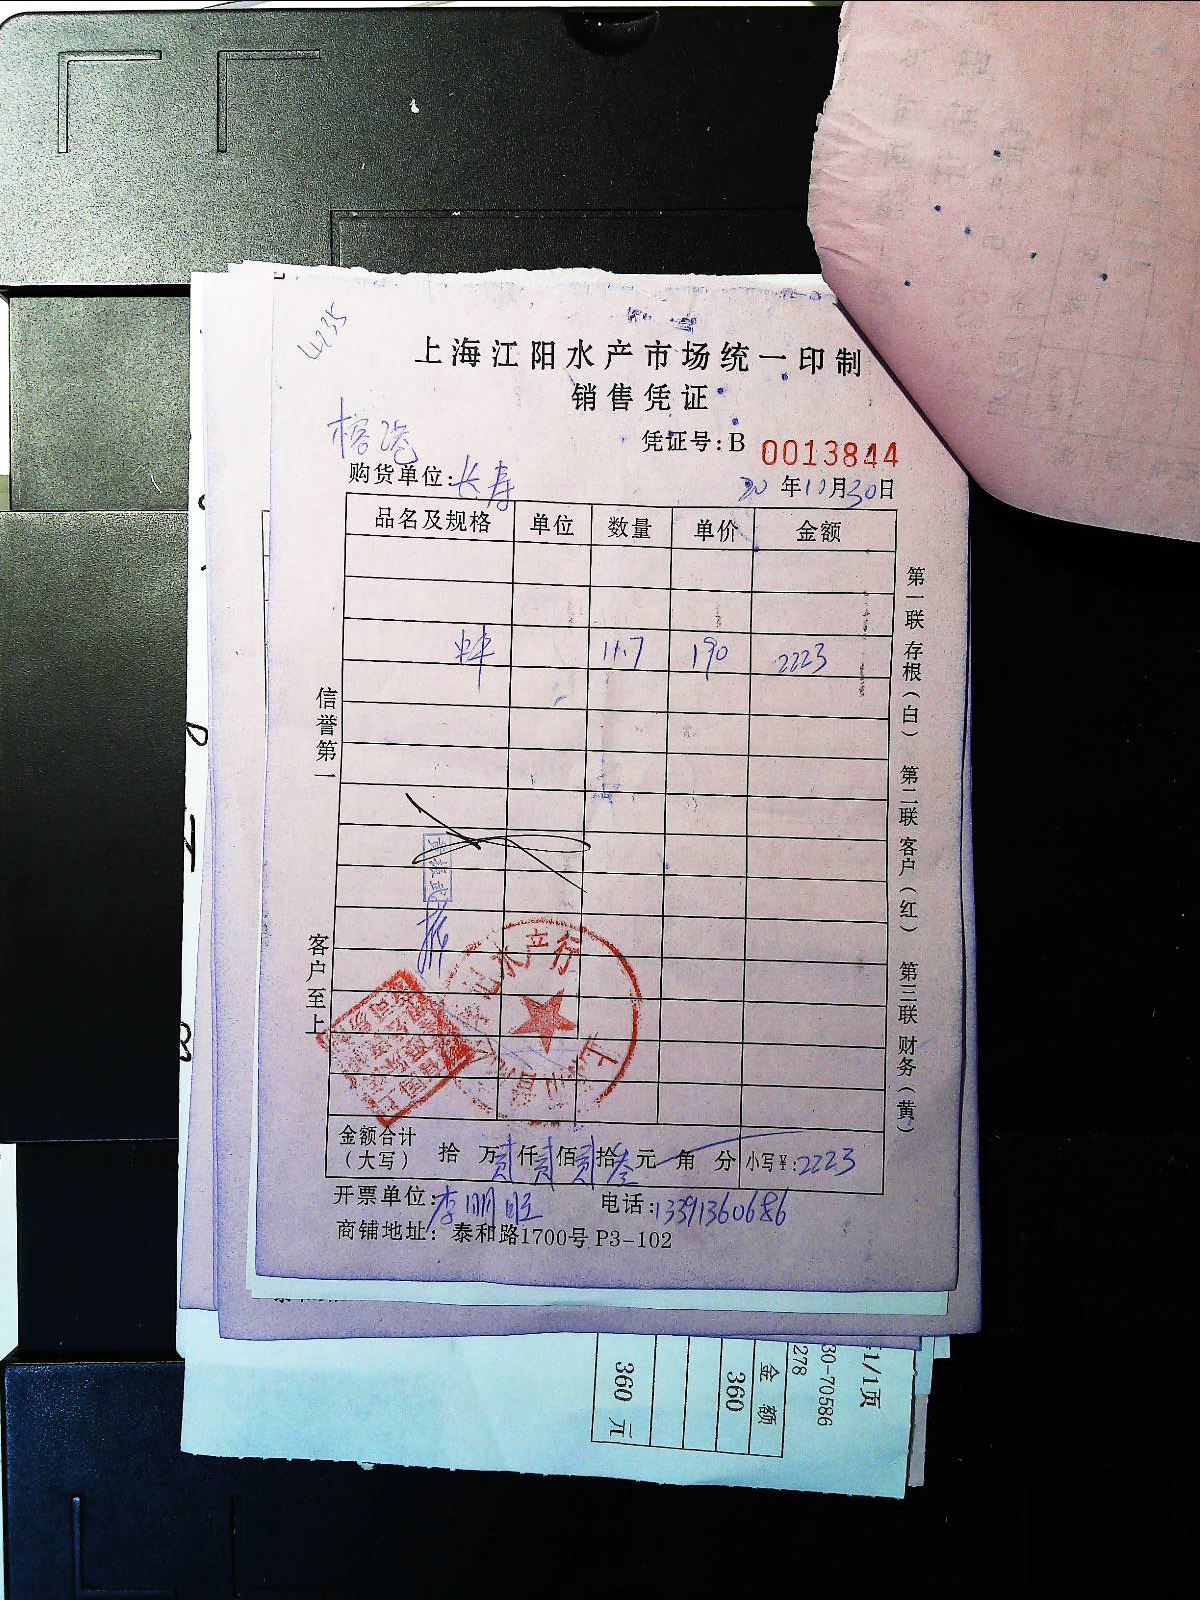 4235
上海江阳水产市场统一印制
销售凭证
凭证号:B 0013844
榕港
购货单位:长寿
20年10月30日
品名及规格 单位 数量 单价 金额
11.7 190 2223
信誉第一
客户至上
第一联 存根（白） 第二联 客户（红） 第三联 财务（黄）
水产行
金额合计
（大写） 拾 万贰仟贰佰贰拾叁元 角 分 小写¥:2223
开票单位:李明旺 电话:13391360686
商铺地址: 泰和路1700号 P3-102
1/1页
30-70586
278
金额
360
360 元